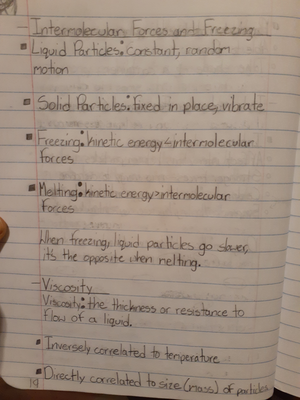 - Intermolecular Forces and Freezing
▪ Liquid Particles: constant, random
motion
▪ Solid Particles: fixed in place, vibrate
▪ Freezing: kinetic energy < intermolecular
forces
▪ Melting: kinetic energy > intermolecular
forces
When freezing, liquid particles go slower,
its the opposite when melting.
- Viscosity
Viscosity: the thickness or resistance to
flow of a liquid.
▪ Inversely correlated to temperature
▪ Directly correlated to size (mass) of particles